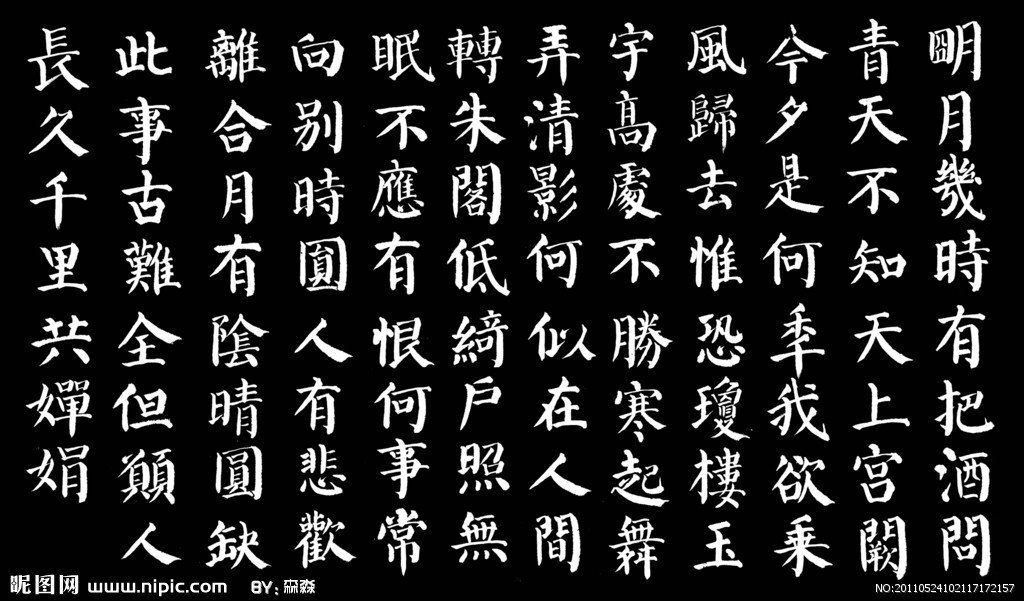 朙月幾時有把酒問
青天不知天上宫闕
今夕是何秊我欲乘
風歸去惟恐瓊樓玉
宇高處不勝寒起舞
弄清影何似在人間
轉朱閣低綺戶照無
眠不應有恨何事常
向别時圓人有悲歡
離合月有陰晴圓缺
此事古難全但願人
長久千里共嬋娟
昵图网 www.nipic.com BY:森淼
NO:20110524102117172157